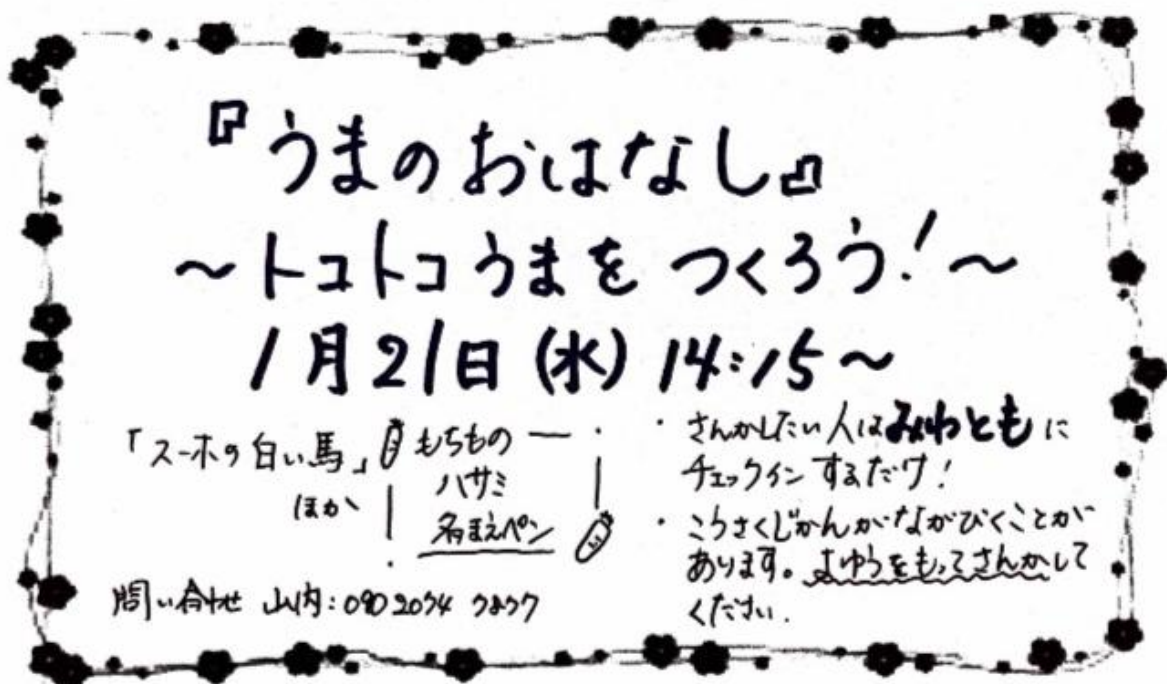 『うまのおはなし』
～トコトコうまを つくろう！～
1月21日(水) 14:15～
「スーホの白い馬」
ほか
もちもの
ハサミ
名まえペン
・さんかしたい人はみわともに
チェックインするだけ！
・こうさくじかんがながびくことが
あります。よゆうをもってさんかして
ください.
問い合わせ 山内: